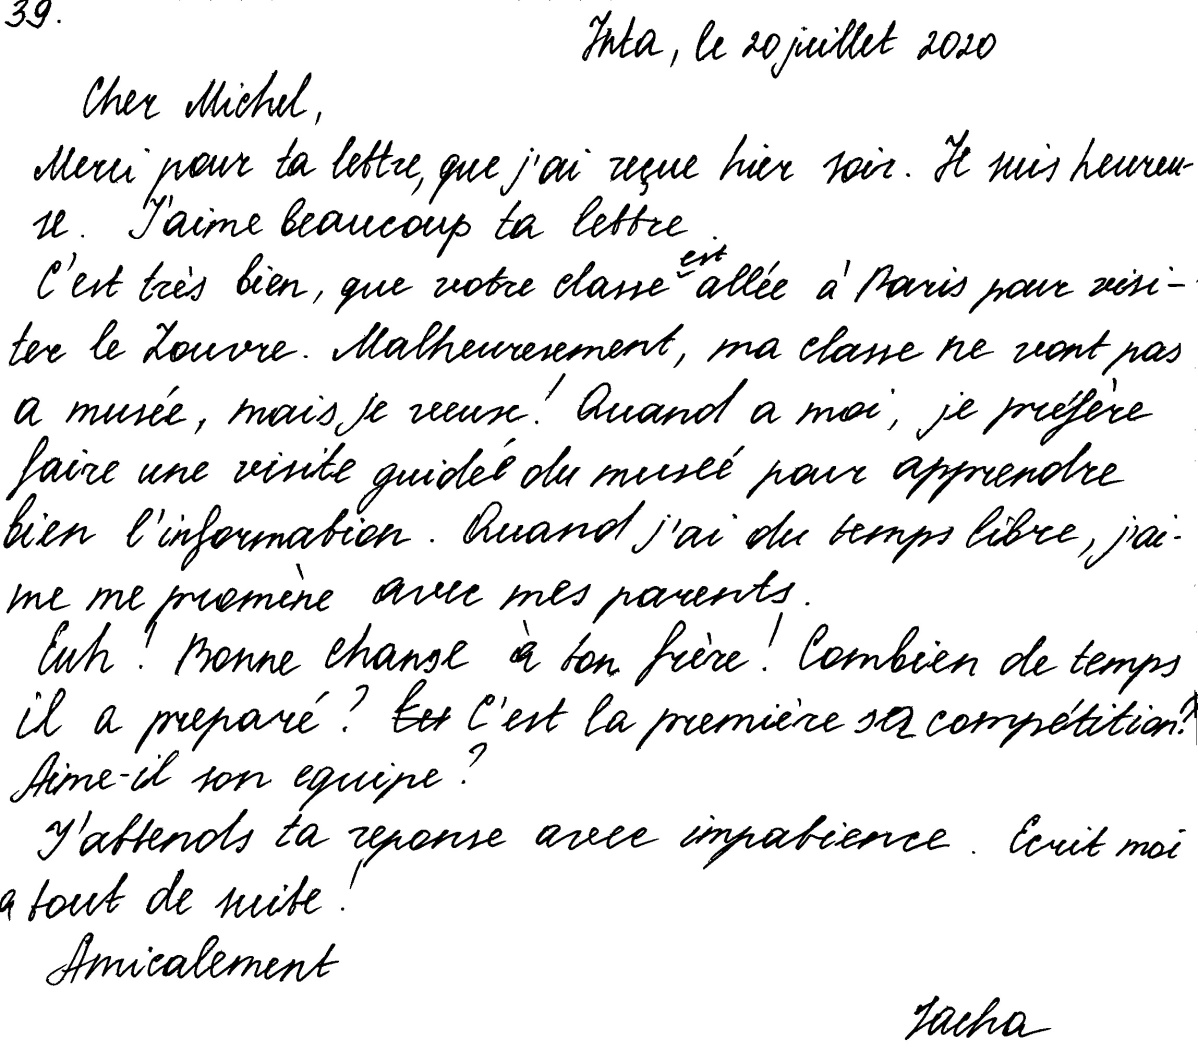 39.
Inta, le 20 juillet 2020
Cher Michel,
Merci pour ta lettre, que j'ai reçue hier soir. Je suis heureu-
se. J'aime beaucoup ta lettre.
C'est très bien, que votre classe est allée à Paris pour visi-
ter le Louvre. Malheuresement, ma classe ne vont pas
a musée, mais je veux! Quand a moi, je préfère
faire une visite guideé du museé pour apprendre
bien l'information. Quand j'ai du temps libre, j'ai-
me me promène avec mes parents.
Euh! Bonne chanse à ton frère! Combien de temps
il a preparé? C'est la première sa compétition?
Aime-il son equipe?
J'attends ta reponse avec impatience. Ecrit moi
a tout de suite!
Amicalement
Sacha